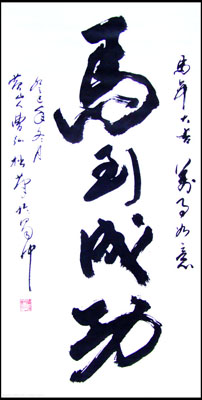 馬年大吉 萬事如意
馬到成功
癸巳年冬月